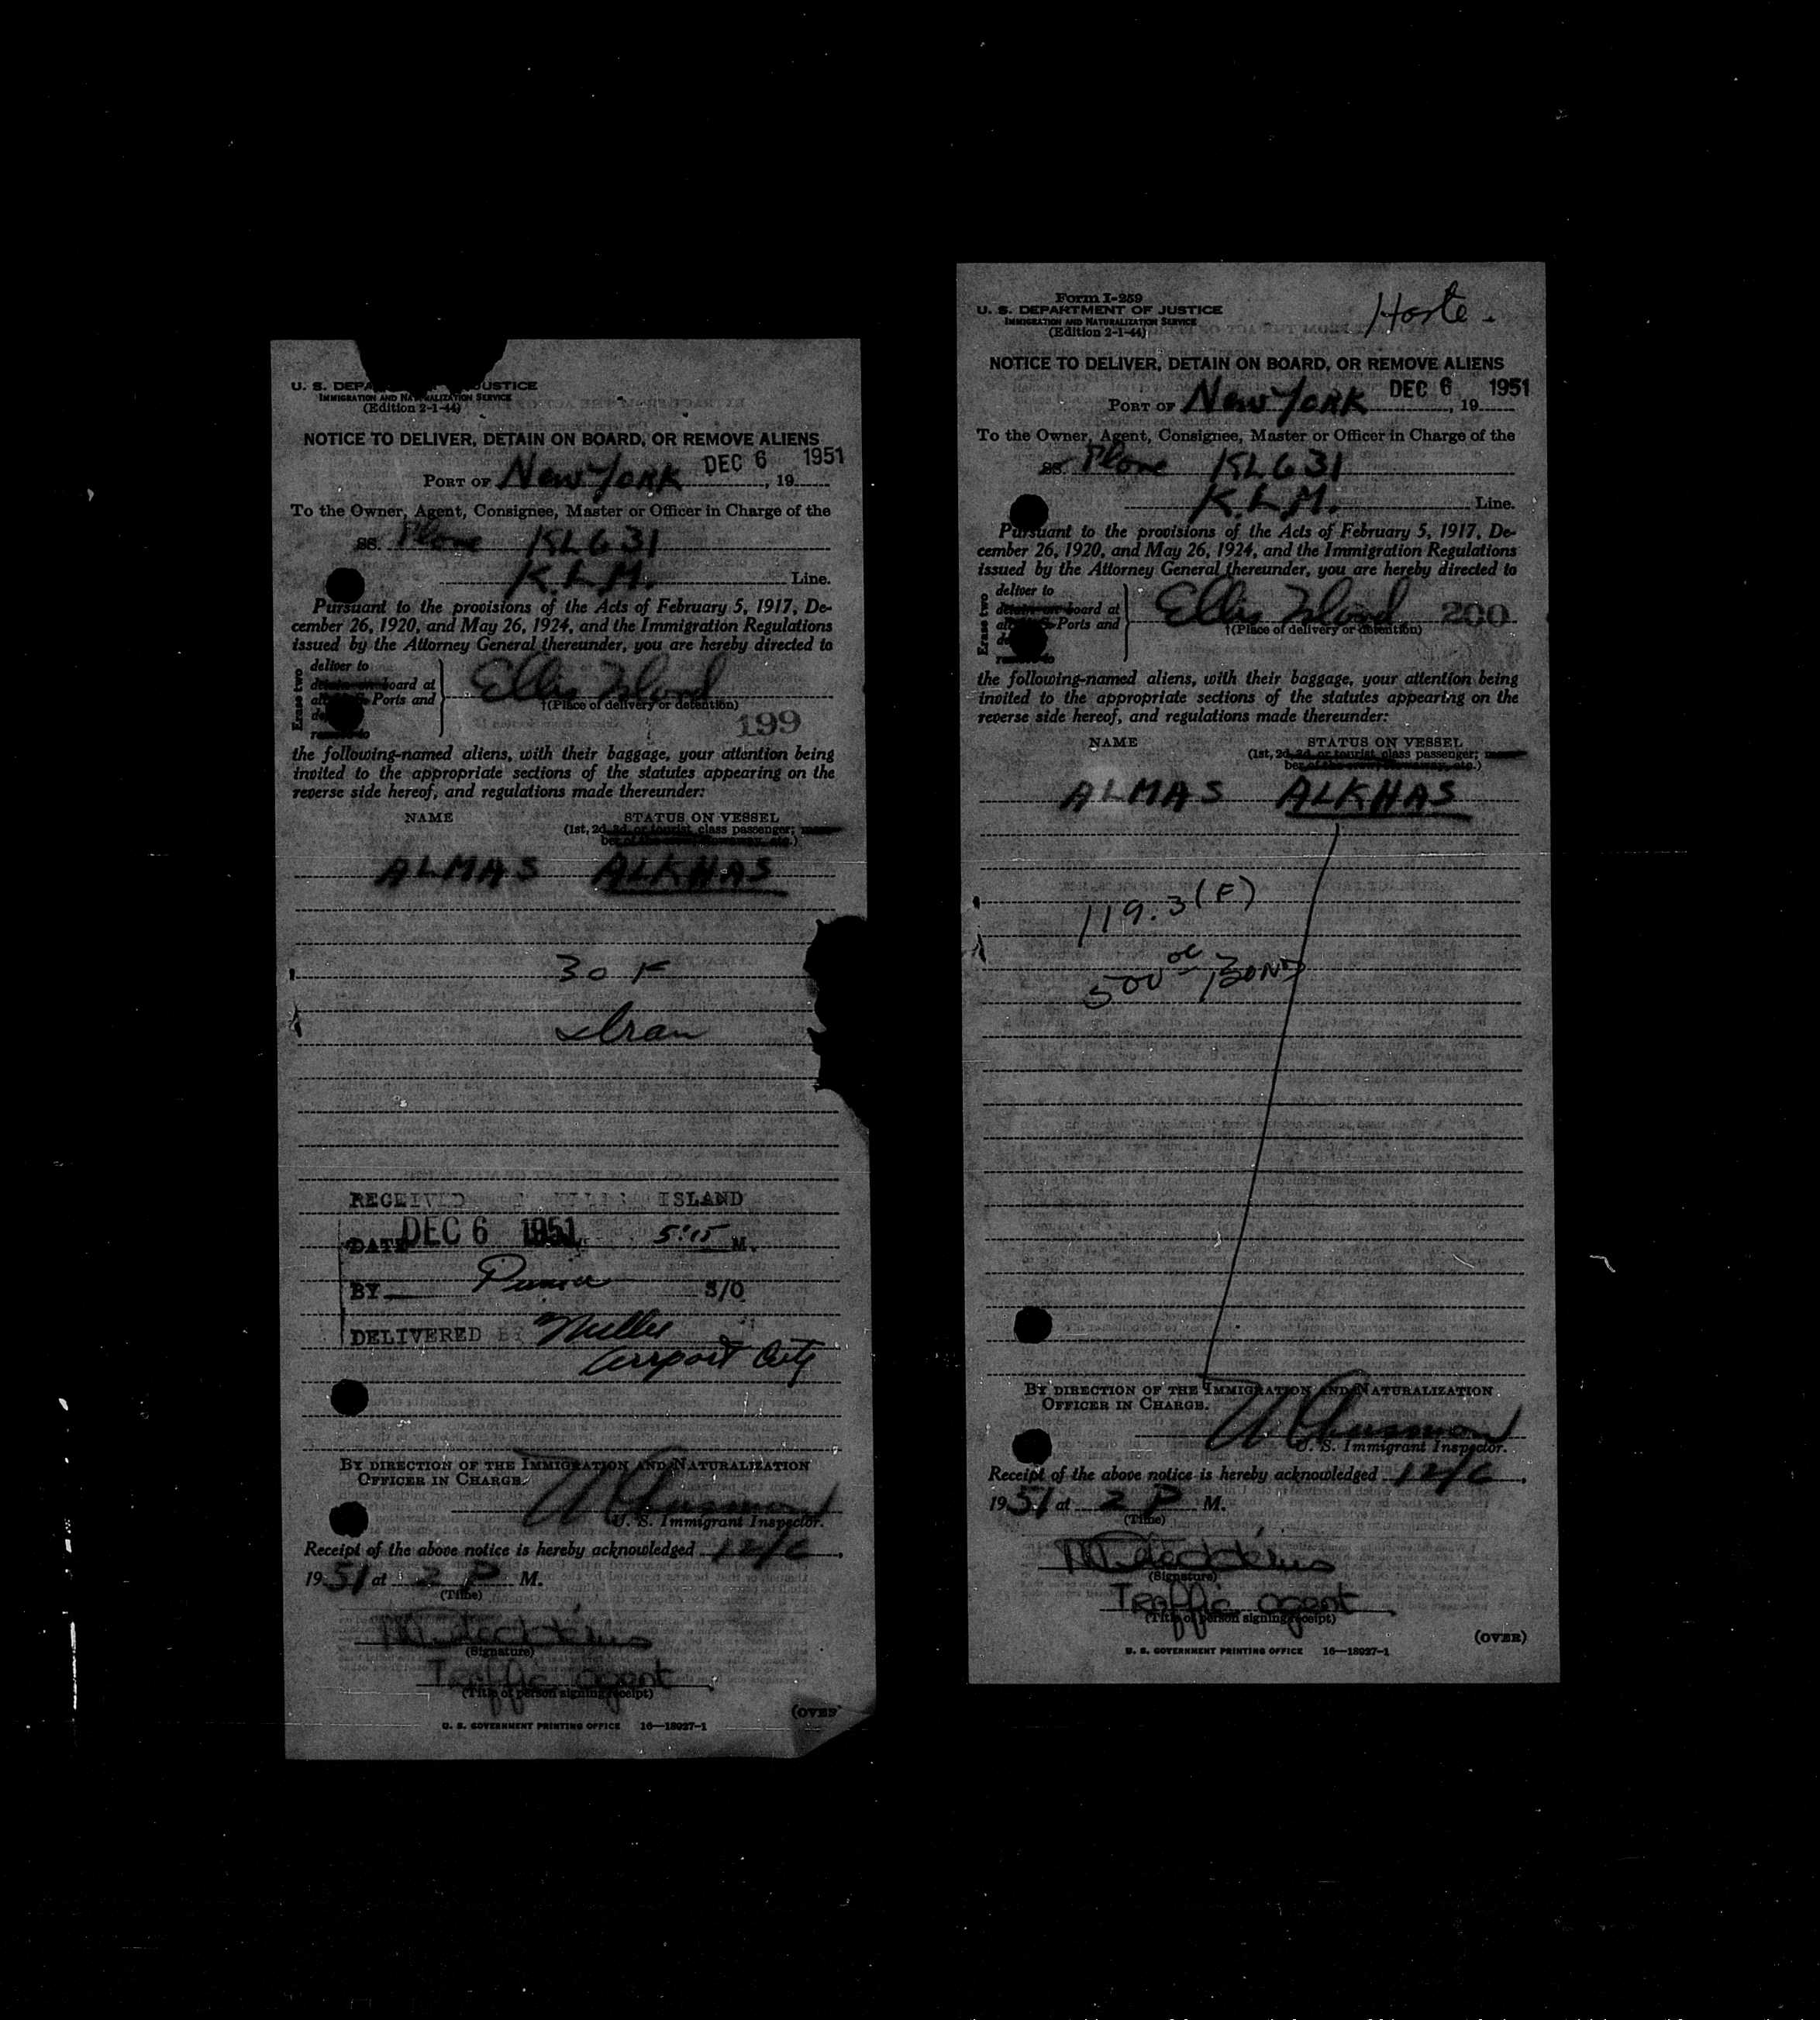 U. S. DEPA JUSTICE
IMMIGRATION AND NATURALIZATION SERVICE
(Edition 2-1-44)
NOTICE TO DELIVER, DETAIN ON BOARD, OR REMOVE ALIENS
PORT OF New York DEC 6 1951, 19
To the Owner, Agent, Consignee, Master or Officer in Charge of the
SS. Plane KL 631
K.L.M. Line.
Pursuant to the provisions of the Acts of February 5, 1917, De-
cember 26, 1920, and May 26, 1924, and the Immigration Regulations
issued by the Attorney General thereunder, you are hereby directed to
Erase two
deliver to
detain on board at
Ports and
remove to
Ellis Island
†(Place of delivery or detention)
199
the following-named aliens, with their baggage, your attention being
invited to the appropriate sections of the statutes appearing on the
reverse side hereof, and regulations made thereunder:
NAME STATUS ON VESSEL
(1st, 2d, 3d, or tourist class passenger;
ALMAS ALKHAS
30 F
Iran
RECEIVED ISLAND
DATE DEC 6 1951 5:15 M.
BY S/O
DELIVERED BY
Airport
BY DIRECTION OF THE IMMIGRATION AND NATURALIZATION
OFFICER IN CHARGE.
U. S. Immigrant Inspector.
Receipt of the above notice is hereby acknowledged 12/6,
1951 at 2 P M.
(Time)
(Signature)
Traffic agent
(Title of person signing receipt)
(OVER)
U. S. GOVERNMENT PRINTING OFFICE 16—18927-1
Form I-259
U. S. DEPARTMENT OF JUSTICE
IMMIGRATION AND NATURALIZATION SERVICE
(Edition 2-1-44)
NOTICE TO DELIVER, DETAIN ON BOARD, OR REMOVE ALIENS
PORT OF New York DEC 6 1951, 19
To the Owner, Agent, Consignee, Master or Officer in Charge of the
SS. Plane KL 631
K.L.M. Line.
Pursuant to the provisions of the Acts of February 5, 1917, De-
cember 26, 1920, and May 26, 1924, and the Immigration Regulations
issued by the Attorney General thereunder, you are hereby directed to
Erase two
deliver to
detain on board at
Ports and
remove to
Ellis Island 200
†(Place of delivery or detention)
the following-named aliens, with their baggage, your attention being
invited to the appropriate sections of the statutes appearing on the
reverse side hereof, and regulations made thereunder:
NAME STATUS ON VESSEL
(1st, 2d, 3d, or tourist class passenger;
ALMAS ALKHAS
119.3 (F)
500 00 BOND
BY DIRECTION OF THE IMMIGRATION AND NATURALIZATION
OFFICER IN CHARGE.
U. S. Immigrant Inspector.
Receipt of the above notice is hereby acknowledged 12/6,
1951 at 2 P M.
(Time)
(Signature)
Traffic agent
(Title of person signing receipt)
(OVER)
U. S. GOVERNMENT PRINTING OFFICE 16—18927-1